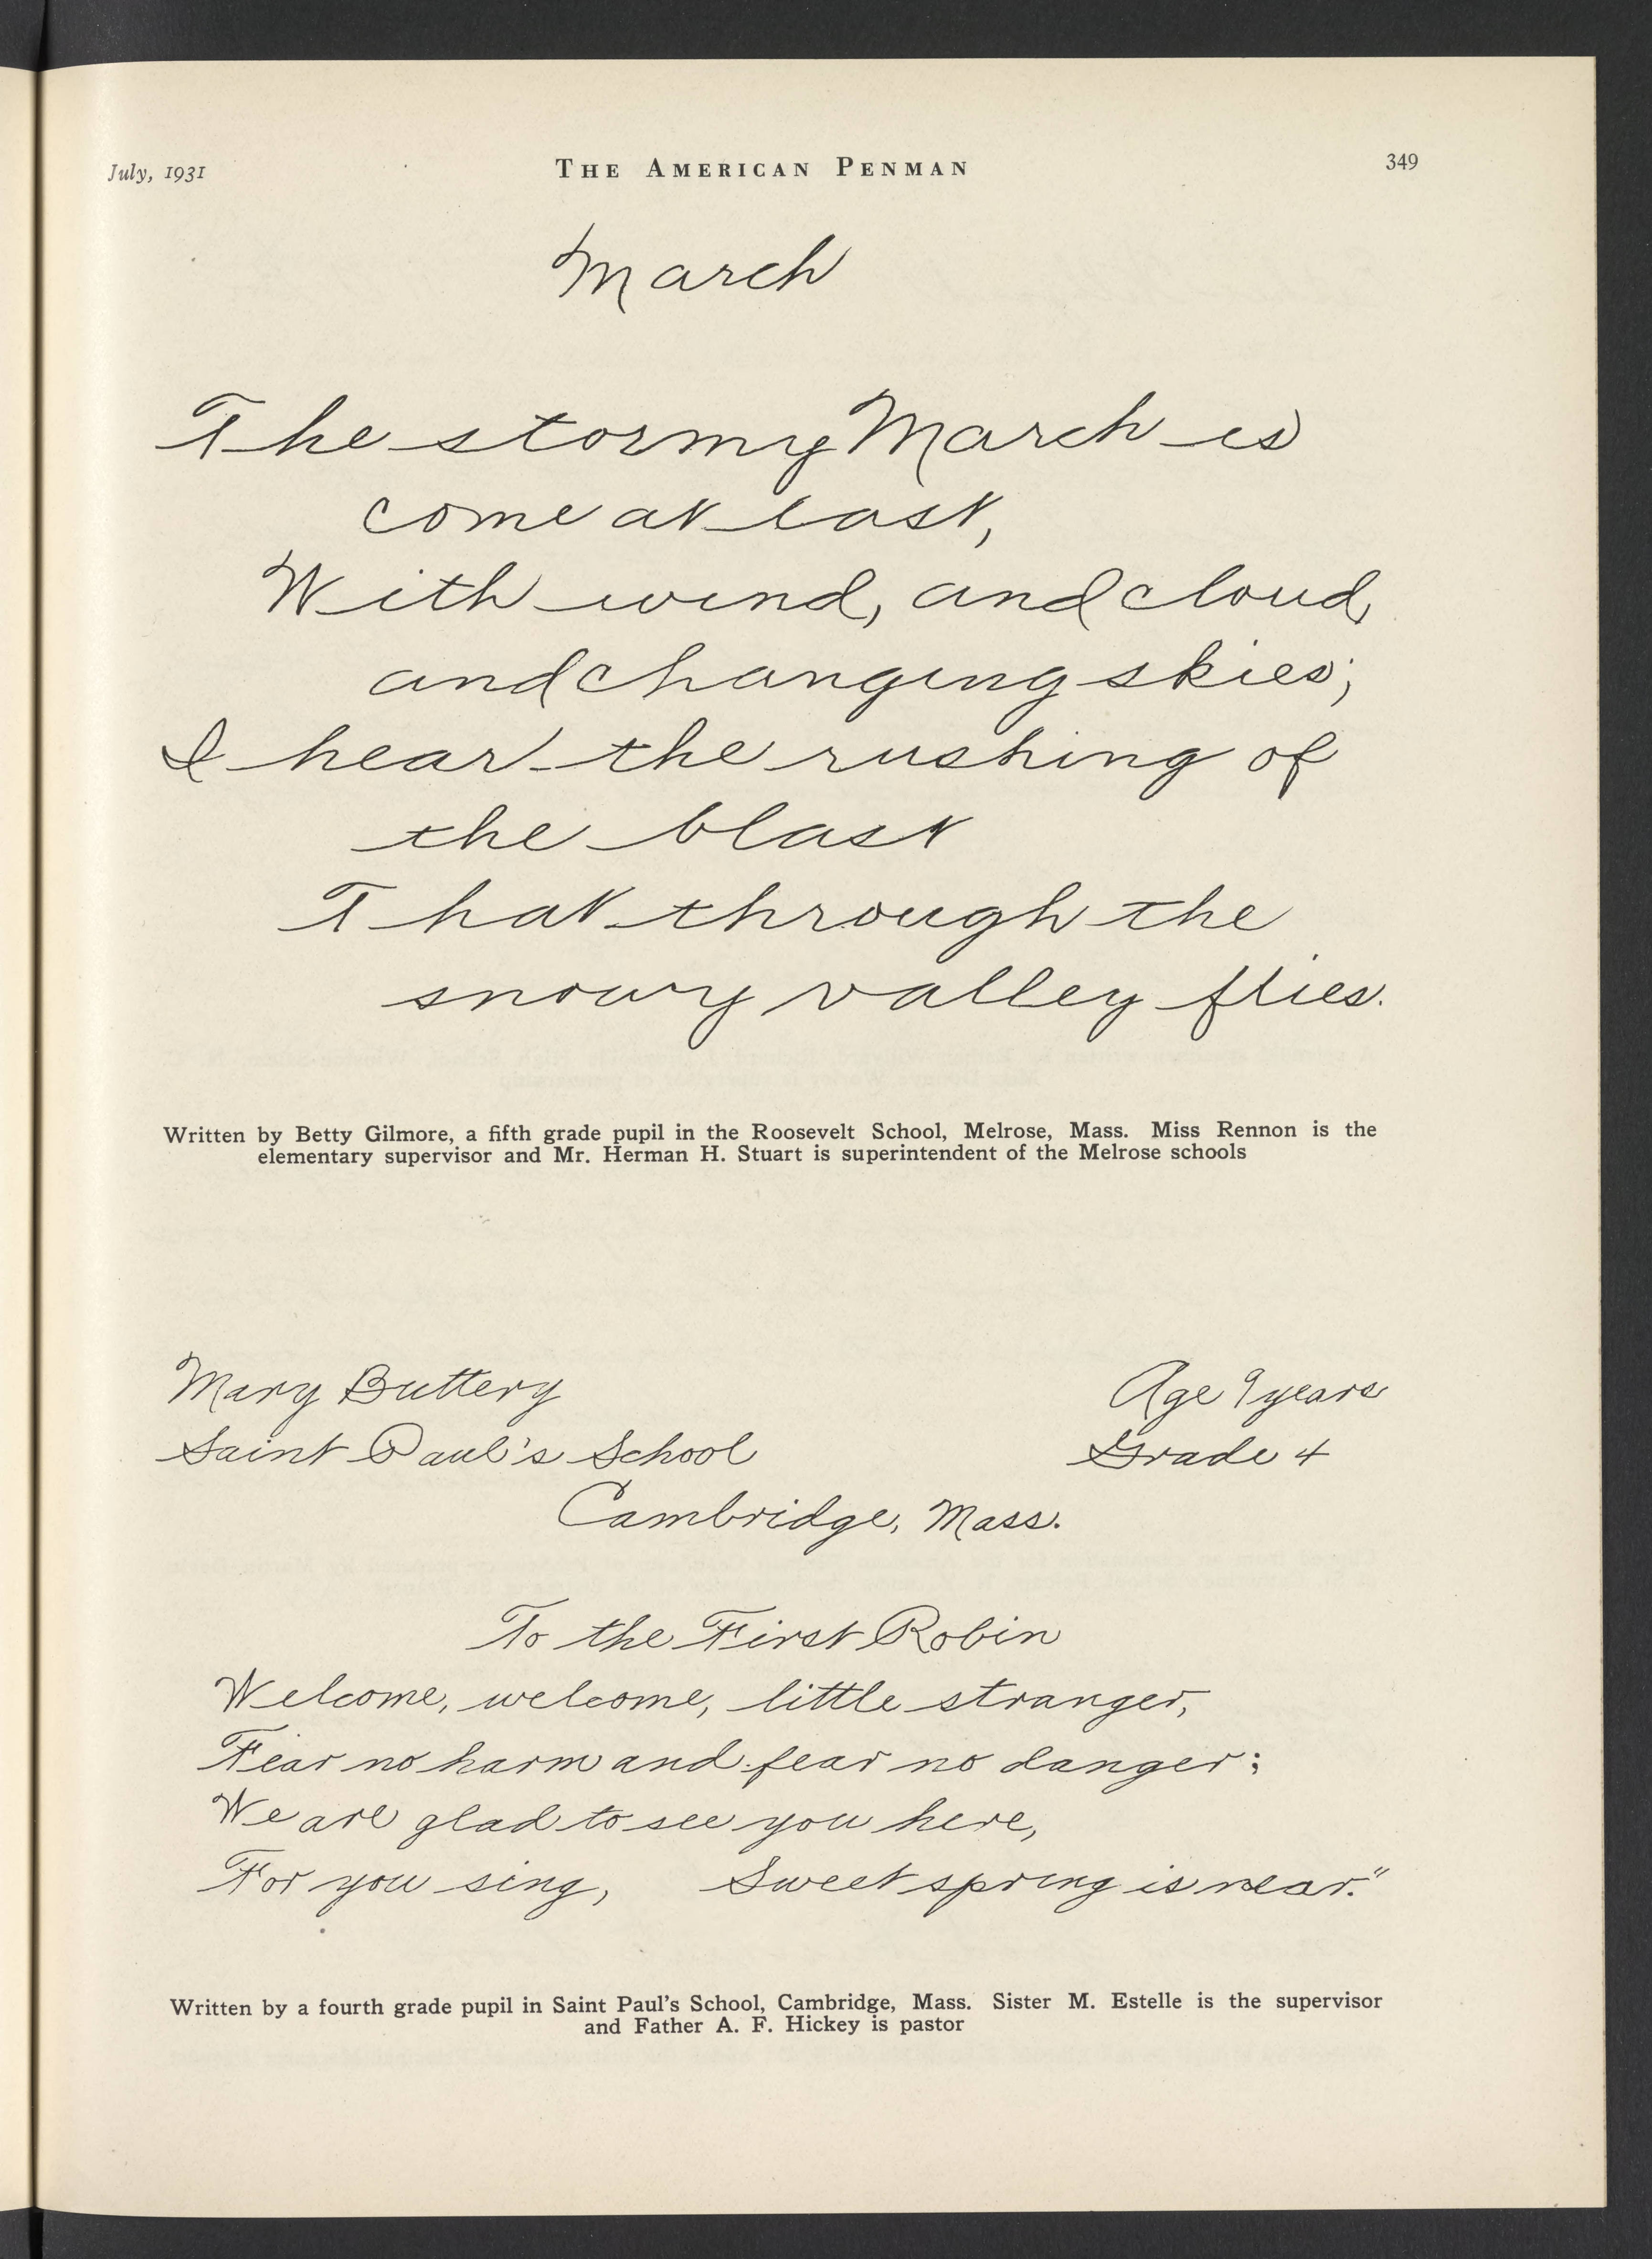 July, 1931 THE AMERICAN PENMAN 349
March
The stormy March is
come at last,
With wind, and cloud,
and changing skies;
I hear the rushing of
the blast
That through the
snowy valley flies.
Written by Betty Gilmore, a fifth grade pupil in the Roosevelt School, Melrose, Mass. Miss Rennon is the
elementary supervisor and Mr. Herman H. Stuart is superintendent of the Melrose schools
Mary Buttery Age 9 years
Saint Paul's School Grade 4
Cambridge, Mass.
To the First Robin
Welcome, welcome, little stranger,
Fear no harm and fear no danger;
We are glad to see you here,
For you sing, Sweet spring is near."
Written by a fourth grade pupil in Saint Paul's School, Cambridge, Mass. Sister M. Estelle is the supervisor
and Father A. F. Hickey is pastor